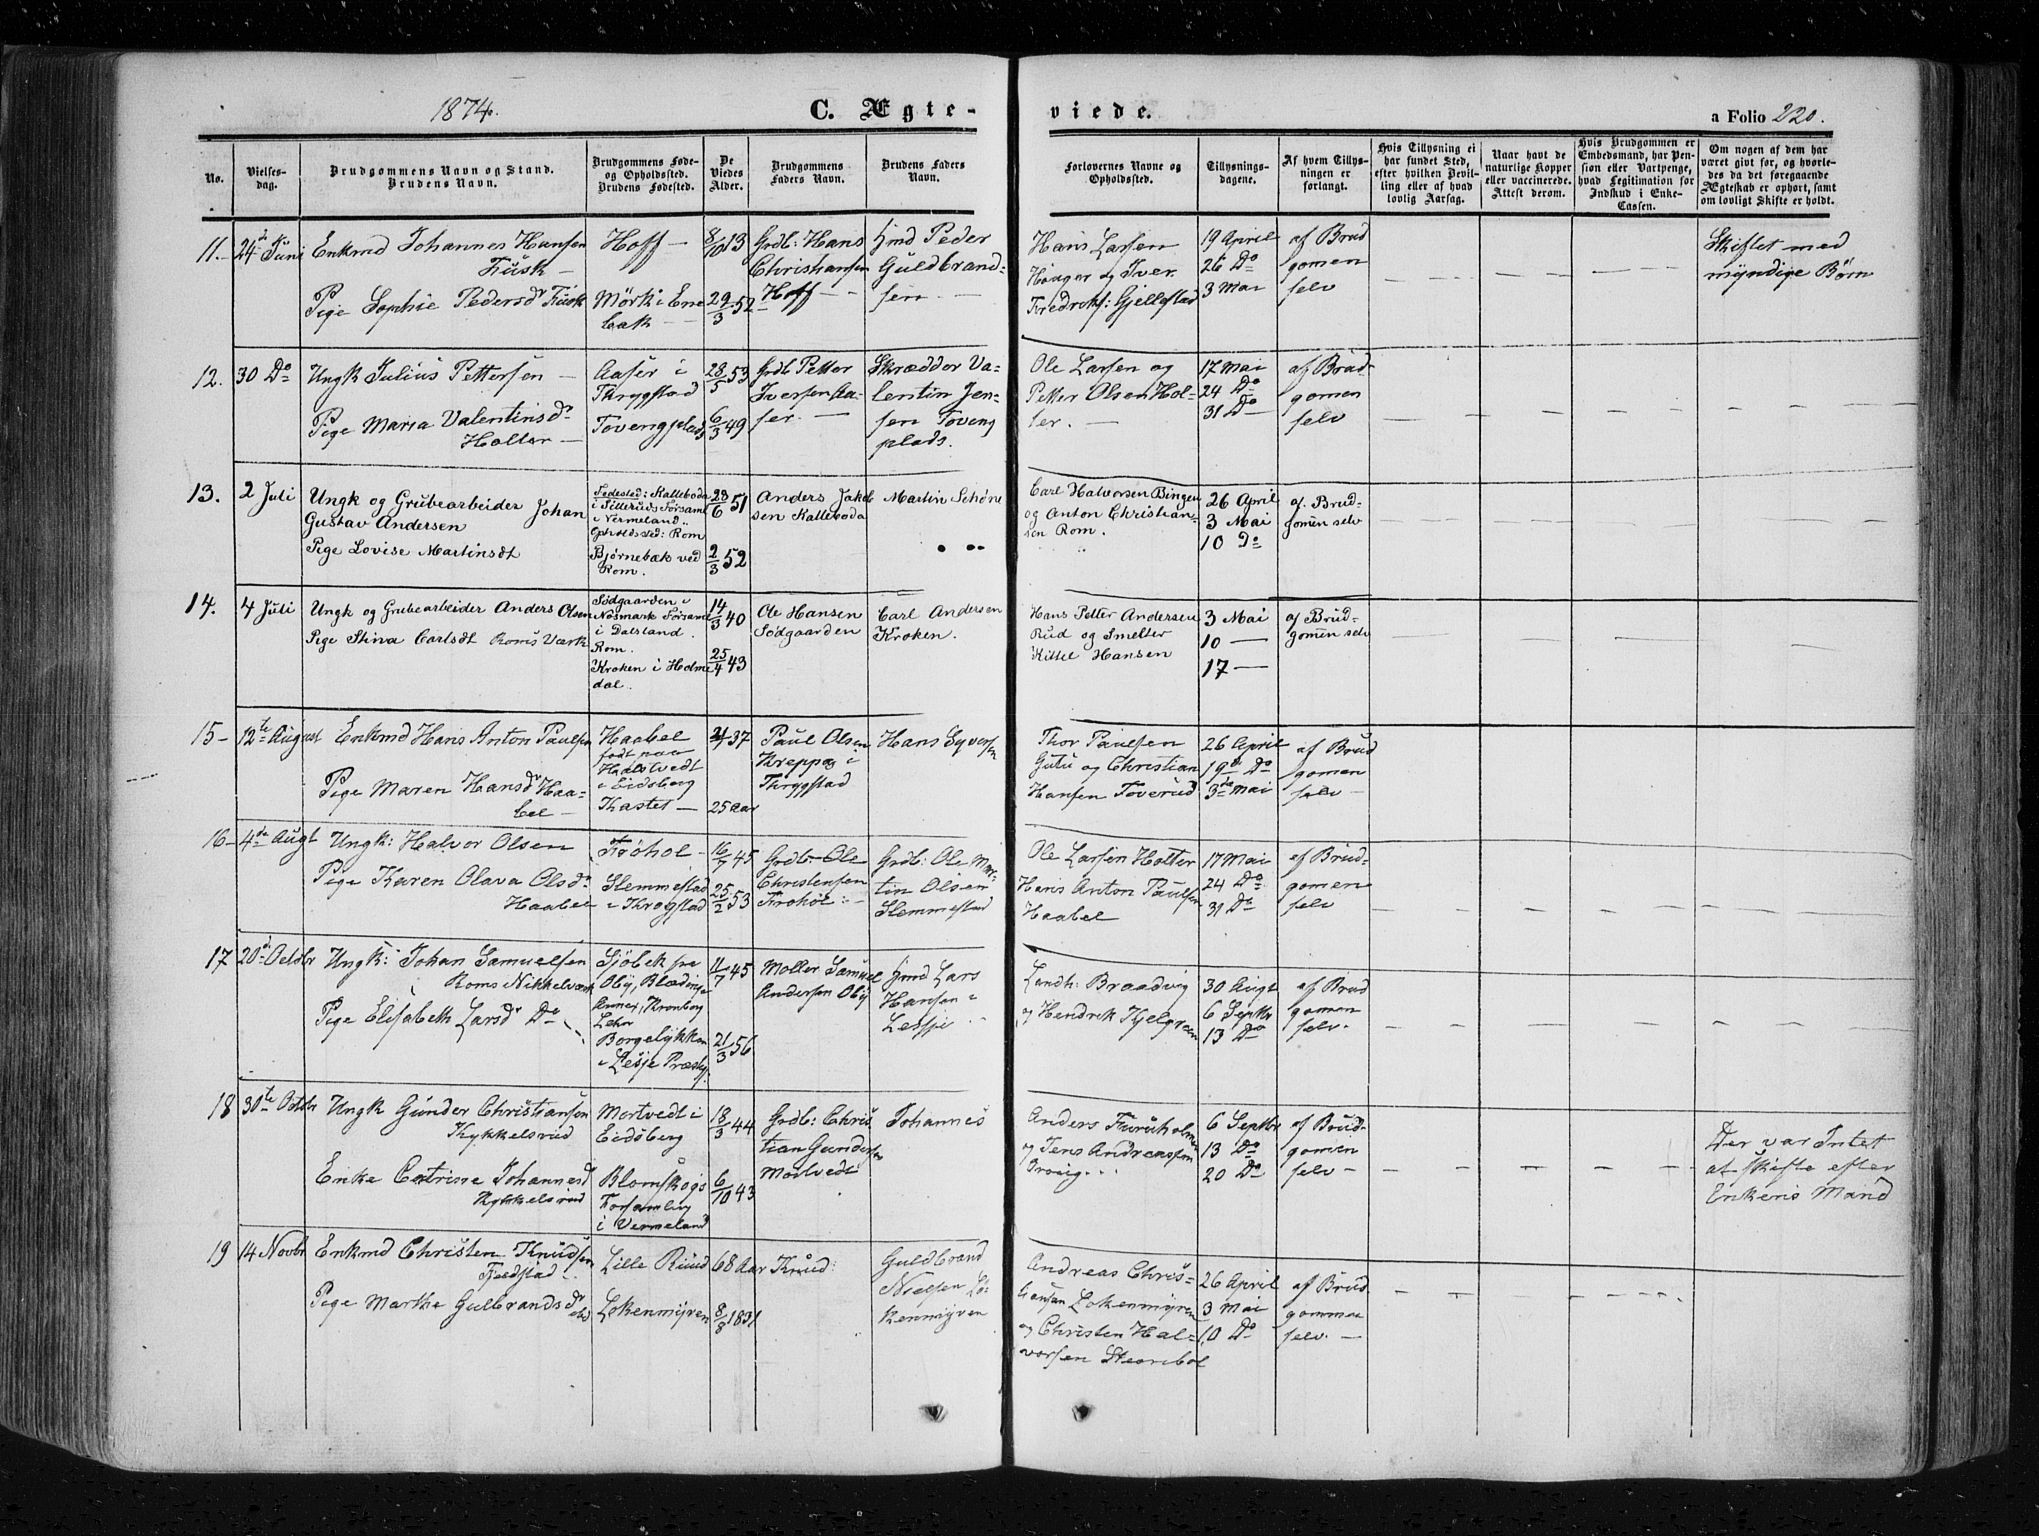 1874.
C. Ægte-
viede.
a Folio 220.
No.
Vielses-
dag.
Brudgommens Navn og Stand.
Brudens Navn.
Brudgommens Føde-
og Opholdssted.
Brudens Fødested.
De
Viedes
Alder.
Brudgommens
Faders Navn.
Brudens Faders
Navn.
Forlovernes Navne og
Opholdssted.
Tillysnings-
dagene.
Af hvem Tillys-
ningen er
forlangt.
Hvis Tillysning ei
har fundet Sted,
efter hvilken Bevil-
ling eller af hvad
lovlig Aarsag.
Naar havt de
naturlige Kopper
eller vaccinerede.
Attest derom.
Hvis Brudgommen er
Embedsmand, har Pen-
sion eller Vartpenge,
hvad Legitimation for
Indskud i Enke-
Cassen.
Om nogen af dem har
været givt før, og hvorle-
des da det foregaaende
Ægteskab er ophørt, samt
om lovligt Skifte er holdt.
11.
24de Juni
Enkmd Johannes Hansen
Fusk
Pige Sophie Pedersdr Fusk
Hoff
Mörk i Ene
bak
8/10 13
29/3 52
Grdb: Hans
Christiansen
Hoff
Hmd Peder
Guldbrand-
sen
Hans Larsen
Haager og Iver
Fredriks: Gjellestad
19 April
26 Do
3 Mai
af Brud
gomen
selv
Skiftet med
myndige Børn
12.
30 Do
Ungk Julius Pettersen
Pige Maria Valentinsdr
Holter
Aaser i
Thrygstad
Tovengplads
28/5 53
6/3 49
Grdb Petter
Iversen Aa-
ser.
Skrædder Va-
lentin Jen-
sen Toveng
plads.
Ole Larsen og
Petter Olsen Hol-
ter.
17 Mai
24 Do
31 Do
af Brud-
gomen
selv
13.
2 Juli
Ungk og Grubearbeider Johan
Gustav Andersen
Pige Lovise Martinsdt
Fødested: Kalleboda
i Silleruds Forsaml
i Vermeland.
Opholdsted: Rom
Bjørnebæk ved
Rom.
23/6 51
2/3 52
Anders Jakob
sen Kalleboda
Martin Schøne
Carl Halvorsen Bingen
og Anton Christian-
sen Rom.
26 April
3 Mai
10 Do
af Brud-
gomen selv
14.
4 Juli
Ungk og Grubearbeider Anders Olsen
Pige Stina Carlsdt Roms Værk
Södgaarden i
Nösmark Forsaml
i Dalsland.
Rom.
Kroken i Holme
dal.
14/3 40
25/4 43
Ole Hansen
Södgaarden
Carl Andersen
Kroken.
Hans Petter Andersen
Rud og Smelter
Kittel Hansen
3 Mai
10
17
af Brud-
gomen selv
15
12te August
Enkmd Hans Anton Paulsen
Pige Maren Hansdr Haa-
bel
Haabel
født paa
Hadstvedt
i Eidsberg
Kastet
37
25 aar
Paul Olsen
Kreppa i
Thrygstad
Hans Syversen
Thor Paulsen
Gutu og Christian
Hansen Toverud
26 April
19de Do
3de Mai
af Brud
gomen
selv
16
4de Augt
Ungk: Halvor Olsen
Pige Karen Olava Olsdr
Haabel
Frøhol
Slemmestad
i Throgstad
16/7 45
25/2 53
Grdb Ole
Christensen
Frohol
Grdb: Ole Mar-
tin Olsen
Slemmestad
Ole Larsen Holter
Hans Anton Paulsen
Haabel
17 Mai
24 Do
31 Do
af Brud-
gomen
selv
17
20de Octbr
Ungk: Johan Samuelsen
Roms Nikkelværk
Pige Elisabeth Larsdr Do
Sjöbek paa
Oby, Blædinge
Annex, Kronborg
Lehn
Borgelykken
i Lesje Præstg.
11/7 45
21/3 56
Møller Samuel
Andersen Oby
Hmd Lars
Hansen i
Lessje
Landh: Braadvig
og Hendrik Kjelgreen
30 Augt
6 Septbr
13 Do
af Brud
gomen
selv
18
30te Octbr
Ungk Gunder Christiansen
Kykkelsrud
Enke Catrine Johannesd
Kykkelsrud
Mortvedt i
Eidsberg
Blomskogs
Forsamling
i Vermeland
18/3 44
6/10 43
Grdb: Chris
tian Gundersen
Mortvedt
Johannes
Anders Furuholmen
og Jens Andreassen
Ervig
6 Septbr
13 Do
20 Do
af Brud-
gomen
selv
Der var Intet
at skifte efter
Enkens Mand
19
14 Novbr
Enkmd Christen Knudsen
Feldstad
Pige Marthe Gulbrandsdr
ibd
Lille Ruud
Løkenmyren
68 Aar
8/8 1831
Knud
Guldbrand
Nielsen Lø-
kenmyren
Andreas Chris-
tiansen Løkenmyren
og Christen Hal-
vorsen Stenribøl
26 April
3 Mai
10 Do
af Brud
gommen
selv